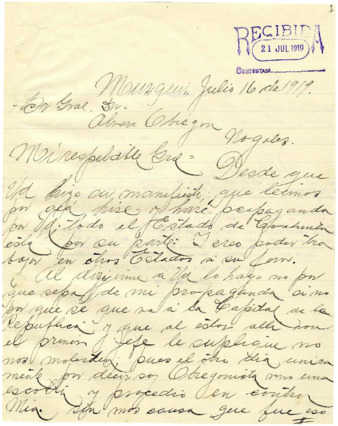 1
RECIBIDA
21 JUL 1919
CONTESTADA
Muzquiz, Julio 16 de 1919.
Sr Gral. Dn
Alvaro Obregon
Nogales.
Mi respetable Gral= Desde que
Ud hizo su manifiesto, que leimos
por acá hise y haré propaganda
por Ud: todo el Estado de Coahuila
está por su parte. Creo poder tra
bajar en otros Estados á su favor.
Al dirijirme á Ud lo hago no por
que sepa de mi propaganda si no
por que sé que va á la Capital de la
Republica y que al estar allá con
el primer Jefe le suplique no
nos molesten, pues el otro dia unica
mente por decir soy Obregonista vino una
escolta y procedió en contra
Mia. sin mas causa que fue eso